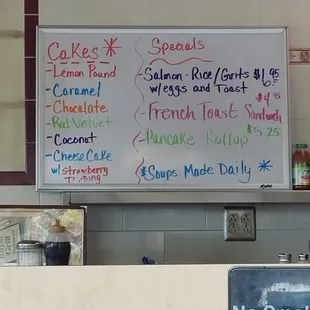 Cakes *
- Lemon Pound
- Caramel
- Chocolate
- Red Velvet
- Coconut
- Cheese Cake
w/ strawberry
Specials
- Salmon - Rice/Grits
w/eggs and Toast
$4.95
- French Toast Sandwich
- Pancake Rollup
$5.25
*Soups Made Daily *